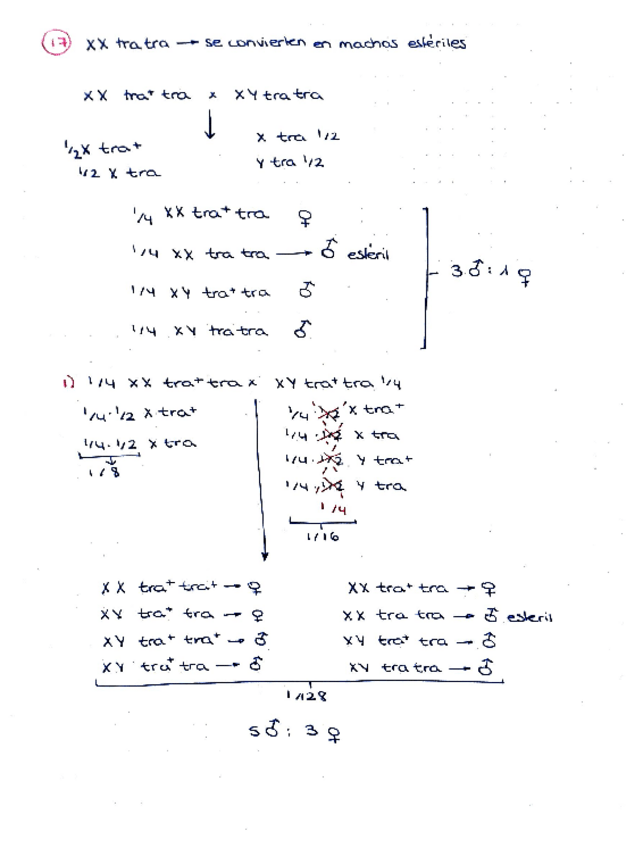 17 XX tra tra → se convierten en machos estériles
XX tra⁺ tra x XY tra tra
↓
1/2 X tra⁺
1/2 X tra
X tra 1/2
Y tra 1/2
1/4 XX tra⁺ tra ♀
1/4 XX tra tra → ♂ estéril
1/4 XY tra⁺ tra ♂
1/4 XY tra tra ♂
3 ♂ : 1 ♀
1) 1/4 XX tra⁺ tra x XY tra⁺ tra 1/4
1/4 · 1/2 X tra⁺
1/4 · 1/2 X tra
1/8
1/4 · 1/2 X tra⁺
1/4 · 1/2 X tra
1/4 · 1/2 Y tra⁺
1/4 · 1/2 Y tra
1/4
1/16
XX tra⁺ tra⁺ → ♀
XY tra⁺ tra → ♀
XY tra⁺ tra⁺ → ♂
XY tra⁺ tra → ♂
XX tra⁺ tra → ♀
XX tra tra → ♂ esteril
XY tra⁺ tra → ♂
XY tra tra → ♂
1/128
5 ♂ : 3 ♀